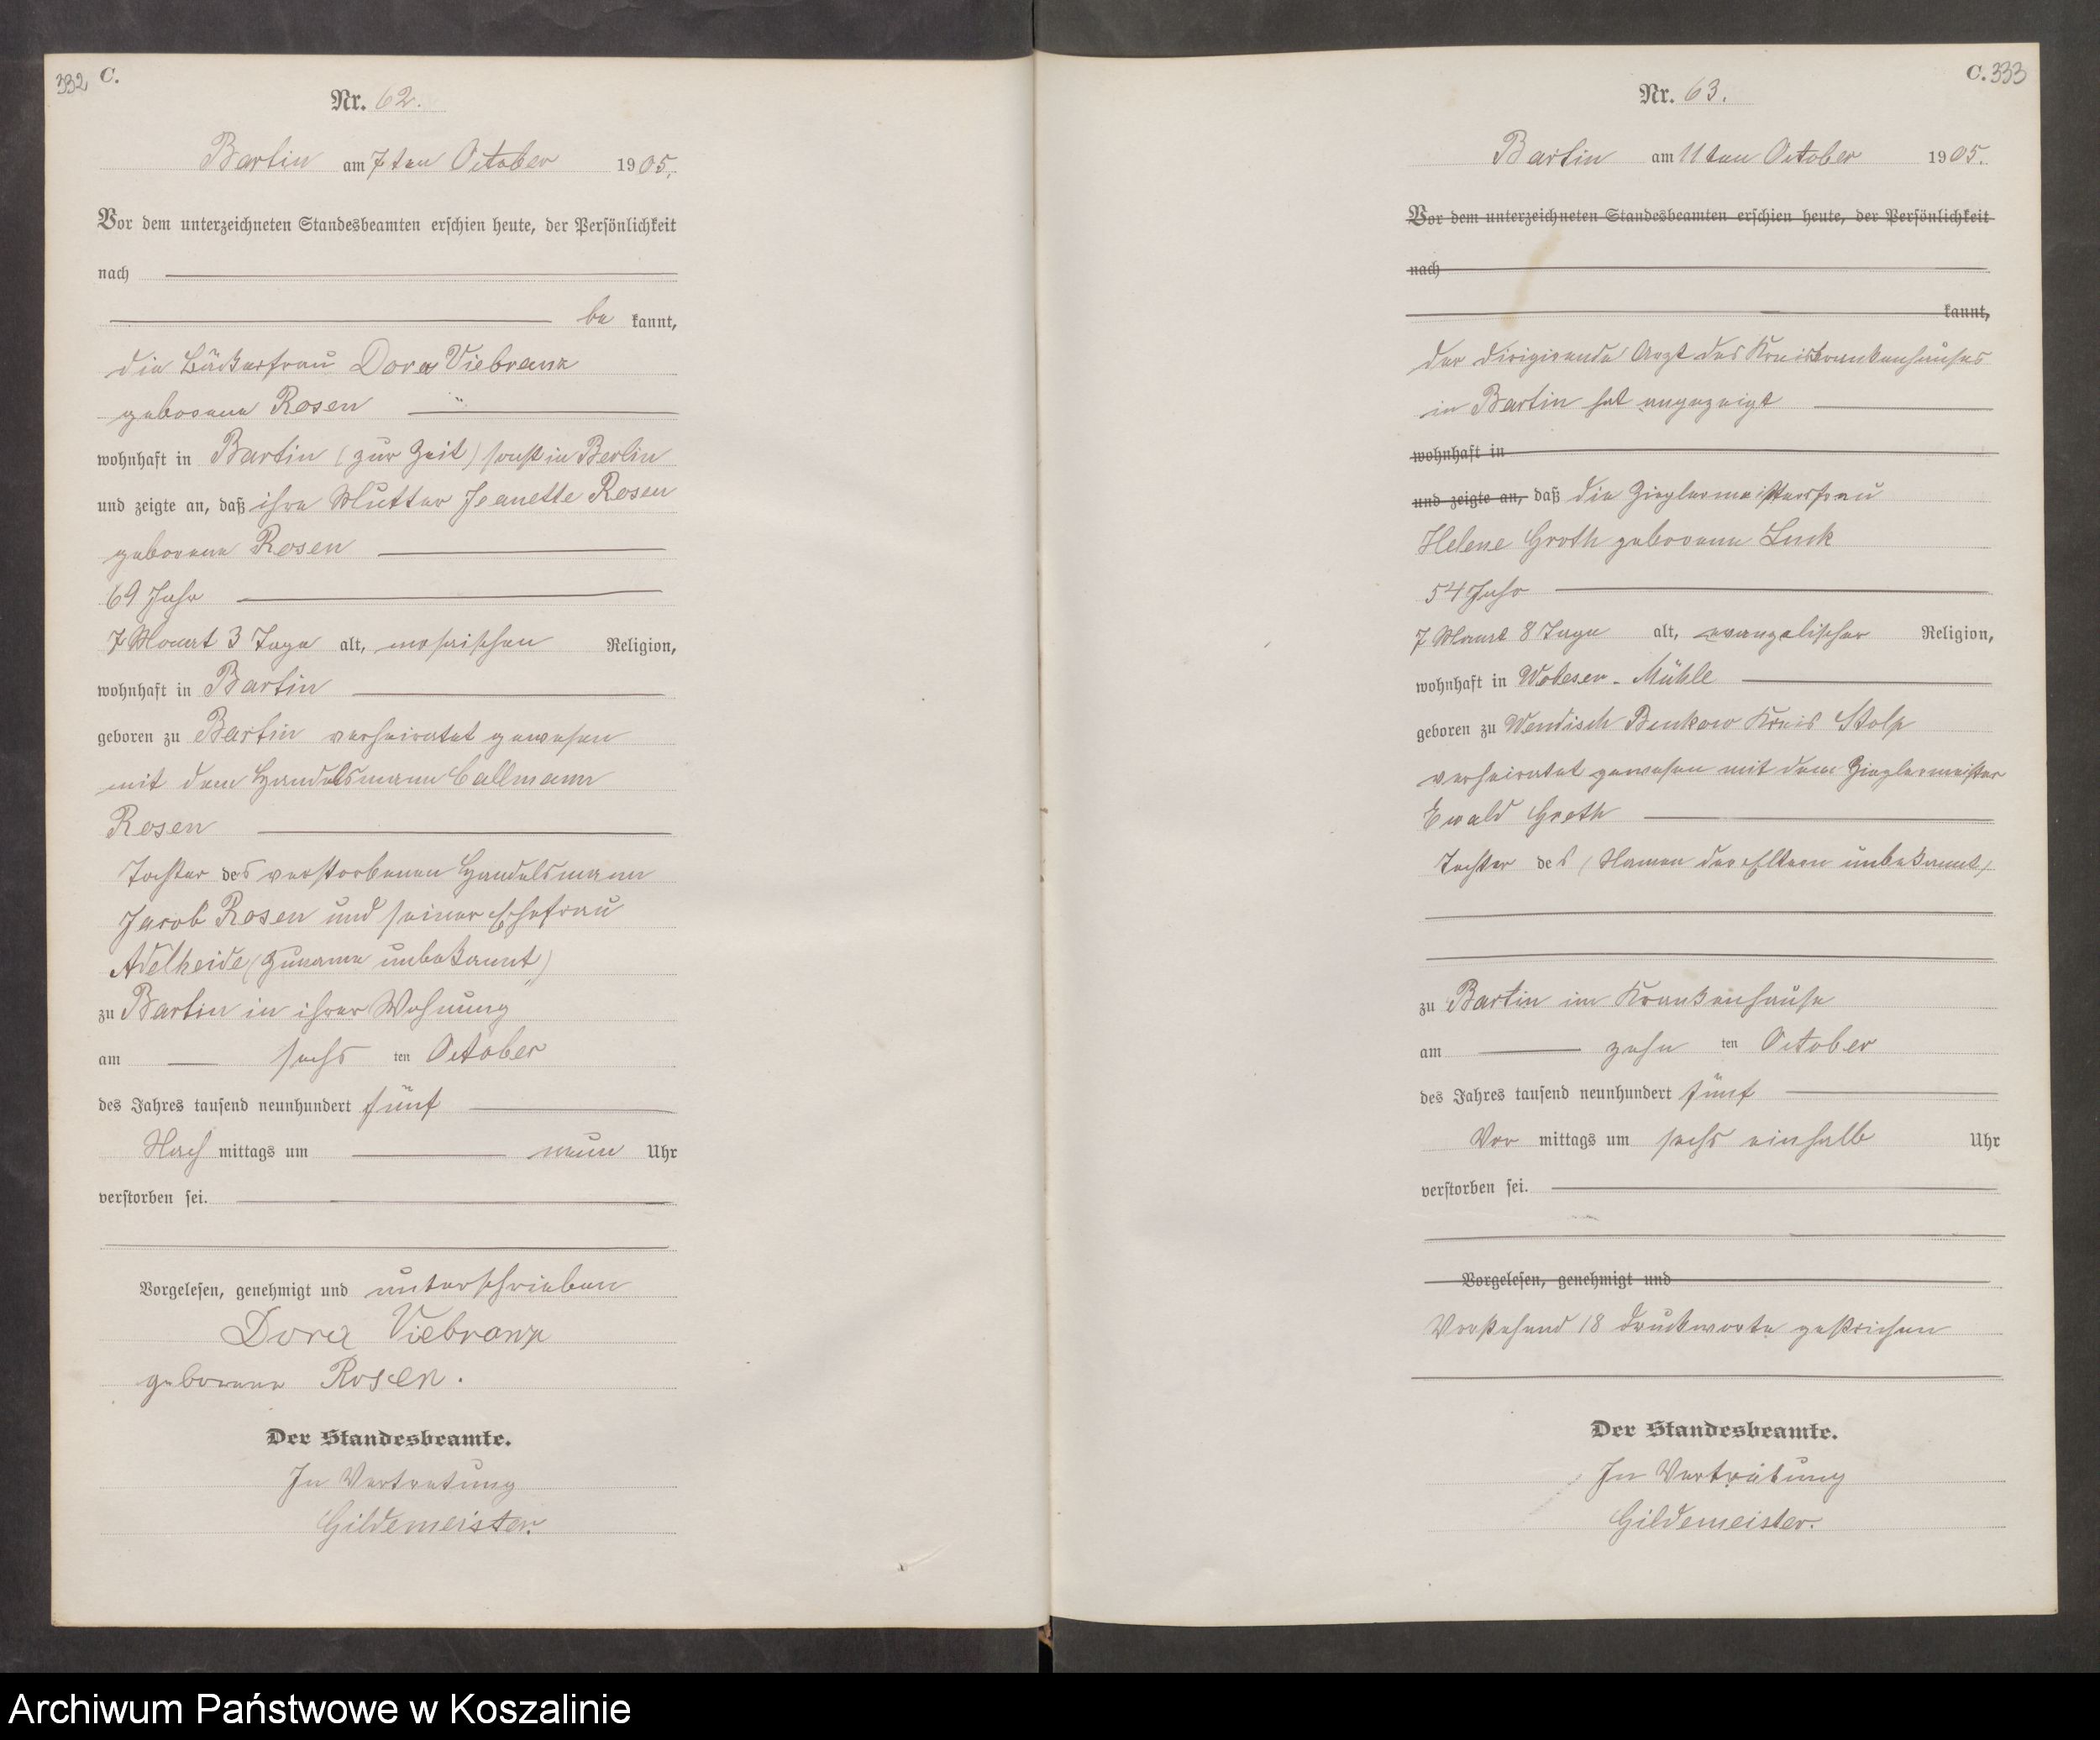 332 C.
Nr. 62.
Bartin am 7ten October 1905.
Vor dem unterzeichneten Standesbeamten erschien heute, der Persönlichkeit
nach
be kannt,
die Bäckerfrau Dora Viebranz
geborene Rosen
wohnhaft in Bartin (zur Zeit) sonst in Berlin
und zeigte an, daß ihre Mutter Jeanette Rosen
geborene Rosen
69 Jahr
7 Monat 3 Tage alt, mosaischen Religion,
wohnhaft in Bartin
geboren zu Bartin verheiratet gewesen
mit dem Handelsmann Callmann
Rosen
Tochter des verstorbenen Handelsmann
Jacob Rosen und seiner Ehefrau
Adelheide (Zuname unbekannt)
zu Bartin in ihrer Wohnung
am sechs ten October
des Jahres tausend neunhundert fünf
Nach mittags um neun Uhr
verstorben sei.
Vorgelesen, genehmigt und unterschrieben
Dora Viebranz
geborene Rosen.
Der Standesbeamte.
In Vertretung
Gildemeister.
C. 333
Nr. 63.
Bartin am 11ten October 1905.
Vor dem unterzeichneten Standesbeamten erschien heute, der Persönlichkeit
nach
kannt,
der dirigirende Arzt des Kreiskrankenhauses
in Bartin hat angezeigt
wohnhaft in
und zeigte an, daß die Zieglermeistersfrau
Helene Groth geborene Luck
54 Jahr
7 Monat 8 Tage alt, evangelischer Religion,
wohnhaft in Wobeser-Mühle
geboren zu Wendisch Bukow Kreis Stolp
verheiratet gewesen mit dem Zieglermeister
Ewald Groth
Tochter des (Namen der Eltern unbekannt)
zu Bartin im Krankenhause
am zehn ten October
des Jahres tausend neunhundert fünf
Vor mittags um sechs einhalb Uhr
verstorben sei.
Vorgelesen, genehmigt und
Vorstehend 18 Druckworte gestrichen
Der Standesbeamte.
In Vertretung
Gildemeister.
Archiwum Państwowe w Koszalinie